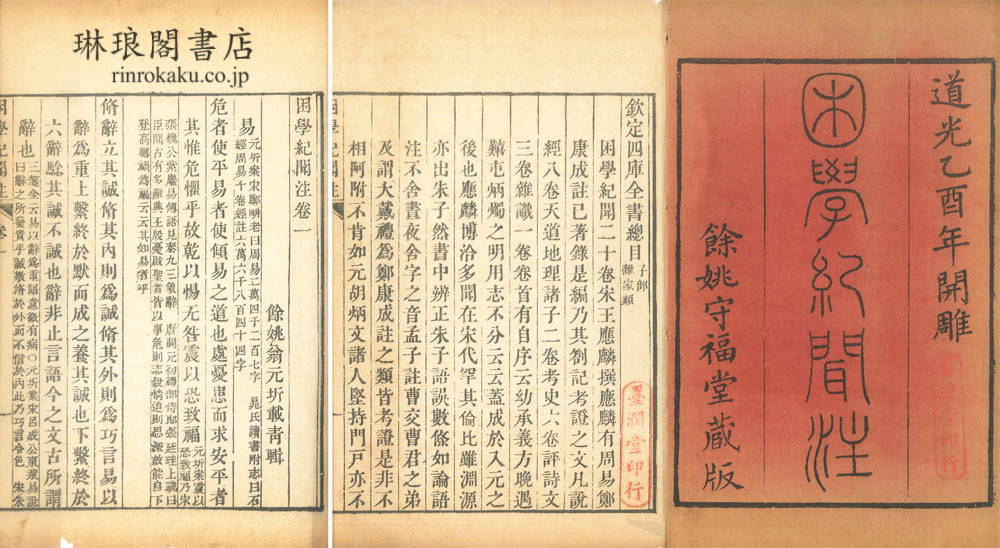 道光乙酉年開雕
困學紀聞注
餘姚守福堂藏版
欽定四庫全書總目 子部 雜家類
困學紀聞二十卷宋王應麟撰應麟有周易鄭
康成註已著錄是編乃其劄記考證之文凡說
經八卷天道地理諸子二卷考史六卷評詩文
三卷雜識一卷卷首有自序云幼承義方晚遇
艱屯炳燭之明用志不分云云蓋成於入元之
後也應麟博洽多聞在宋代罕其倫比雖淵源
亦出朱子然書中辨正朱子語誤數條如論語
注不舍晝夜舍字之音孟子註曹交曹君之弟
及謂大戴禮爲鄭康成註之類皆考證是非不
相阿附不肯如元胡炳文諸人堅持門戶亦不
墨潤堂印行
琳琅閣書店
rinrokaku.co.jp
困學紀聞注卷一
餘姚翁元圻載青輯
易 元圻案宋鄭畊老曰周易二萬四千二百七字 晁氏讀書附志曰石
經周易十卷經註六萬六千八百四十四字
危者使平易者使傾易之道也處憂患而求安平者
其惟危懼乎故乾以惕无咎震以恐致福 元圻案震以恐致福乃宋
張魏公紫巖易傳語見乾九三象辭 唐開元初禮部侍郎張廷珪上疏曰
臣聞古有多難興王殷憂啟聖者皆以事危則志銳情迫則思深故能自下
登高轉禍爲福云云其知易者乎
脩辭立其誠脩其內則爲誠脩其外則爲巧言易以
辭爲重上繫終於默而成之養其誠也下繫終於
六辭驗其誠不誠也辭非止言語今之文古所謂
辭也